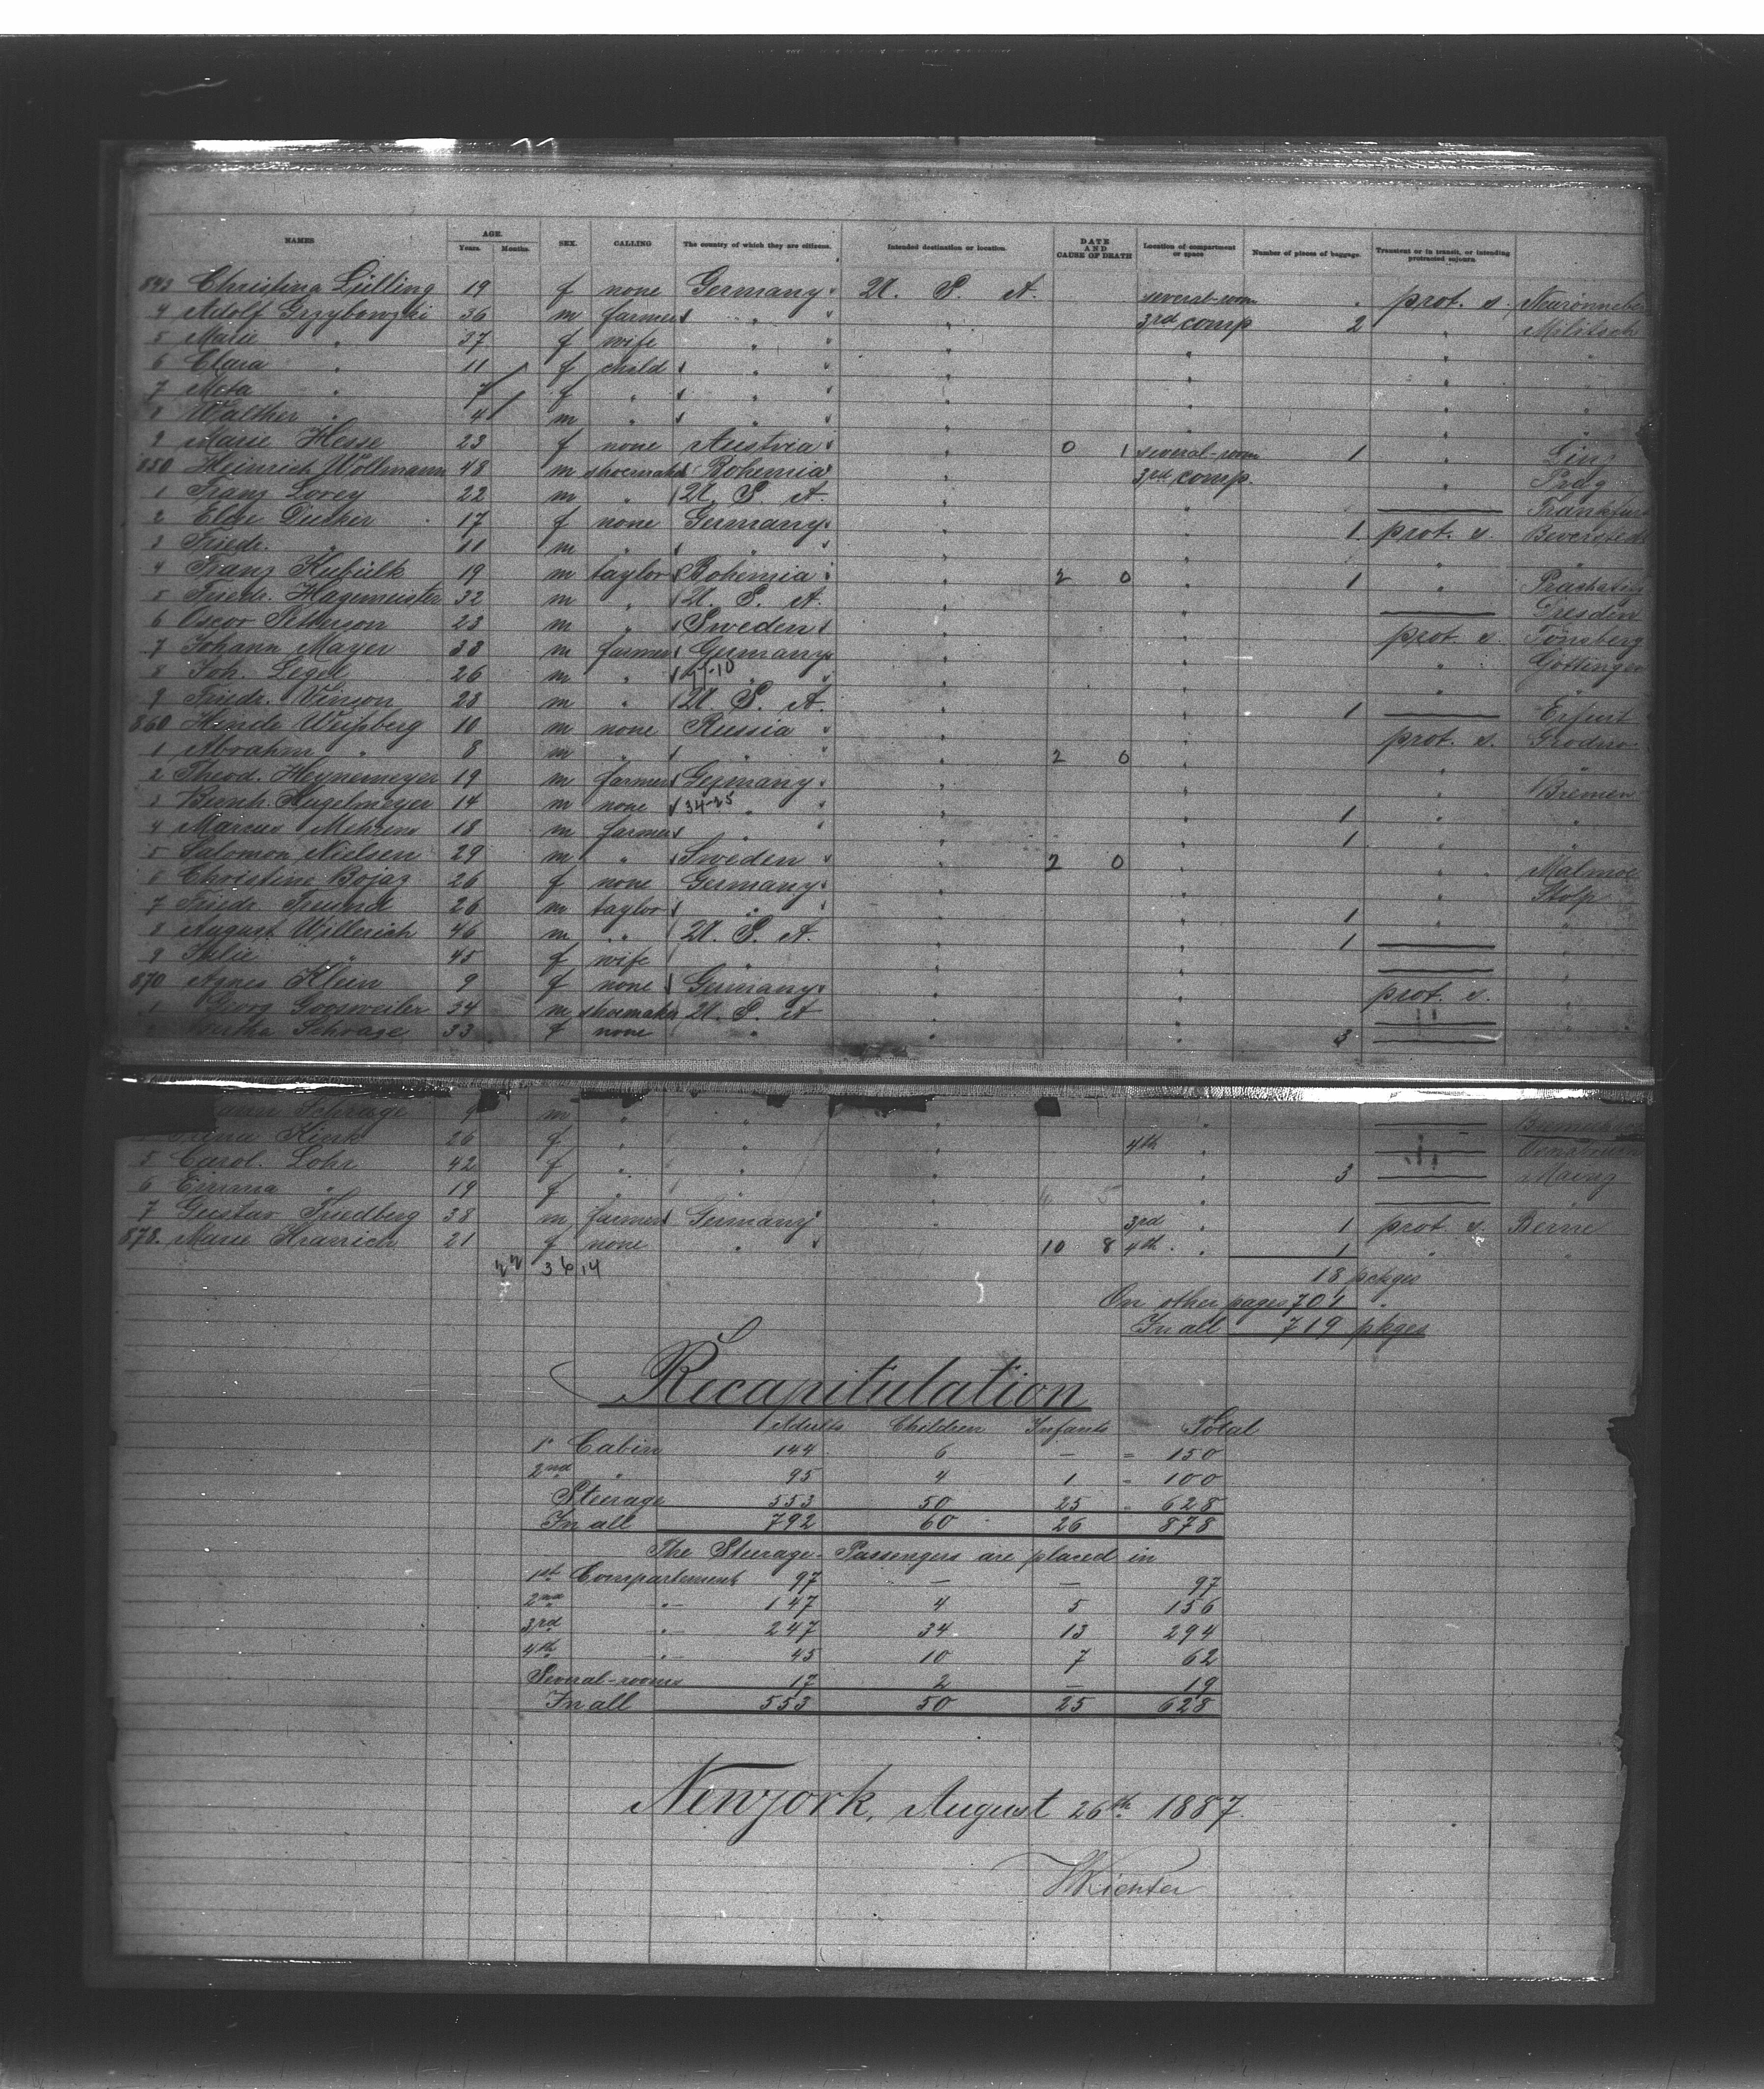 NAMES AGE. Years. Months. SEX. CALLING The country of which they are citizens. Intended destination or location. DATE AND CAUSE OF DEATH Location of compartment or space Number of pieces of baggage. Transient or in transit, or intending protracted sojourn.
843 Christina Lülling 19 f none Germany U. S. A. several-room prot. s.
4 Adolf Grzybowski 36 m farmer " " " 3rd comp 2 " Militsch
5 Marie " 37 f wife " " " " " "
6 Clara " 11 f child " " " " " "
7 Meta " 7 f " " " " " " "
8 Walther " 4 m " " " " " " "
9 Marie Hesse 23 f none Austria " 0 1 several-room 1 " Linz
850 Heinrich Wollmann 48 m shoemaker Bohemia " 3rd comp. " Prag
1 Franz Lorey 22 m " U. S. A. " " Frankfurt
2 Elise Ducker 17 f none Germany " " 1 prot. s.
3 Friedr. " 11 m " " " " " "
4 Franz 19 m taylor Bohemia " 2 0 " 1 "
5 Friedr. Hagemeister 32 m " U. S. A. " " Dresden
6 Oscar Petterson 23 m " Sweden " " prot. s. Tönsberg
7 Johann Mayer 33 m farmer Germany " " " Göttingen
8 Joh. Legel 26 m " 17-10 " " " " "
9 Friedr. Vinson 23 m " U. S. A. " " 1 Erfurt
860 Hende Weißberg 10 m none Russia " " prot. s. Grodno
1 Abrahm " 8 m " " " 2 0 " " "
2 Theod. Heynemeyer 19 m farmer Germany " " " Bremen
3 Bernh. Hugelmeyer 14 m none 34-25 " " " 1 " "
4 Marcus Mehrens 18 m farmer " " " 1 " "
5 Salomon Nielsen 29 m " Sweden " 2 0 " " Malmoe
6 Christine Bojaz 26 f none Germany " " " Stolp
7 Friedr. Freund 26 m taylor " " " 1 " "
8 August Willerich 46 m " U. S. A. " " 1 "
9 Julie " 45 f wife " " " "
870 Agnes Klein 9 f none Germany " " prot. s. "
1 Georg Goosweiler 34 m shoemaker U. S. A " " "
Schrage 33 f none " " " 3 "
Schrage m " " " "
Kink 26 f " " " 4th "
5 Carol. Lohr 42 f " " " " 3 Mainz
6 Emma " 19 f " " "
7 Gustav Friedberg 38 m farmer Germany " 3rd " 1 prot. s. Berne
878. Marie Hranich 21 f none " " 10 8 4th " 1 " "
22 36 14 18 pckges
On other pages 701 "
In all 719 pkges
Recapitulation
Adults Children Infants Total
1st Cabin 144 6 — = 150
2nd " 95 4 1 = 100
Steerage 553 50 25 " 628
In all 792 60 26 878
The Steerage-Passengers are placed in
1st Compartement 97 — — 97
2nd " 147 4 5 156
3rd " 247 34 13 294
4th " 45 10 7 62
Several-rooms 17 2 — 19
In all 553 50 25 628
Newyork, August 26th 1887.
Richter